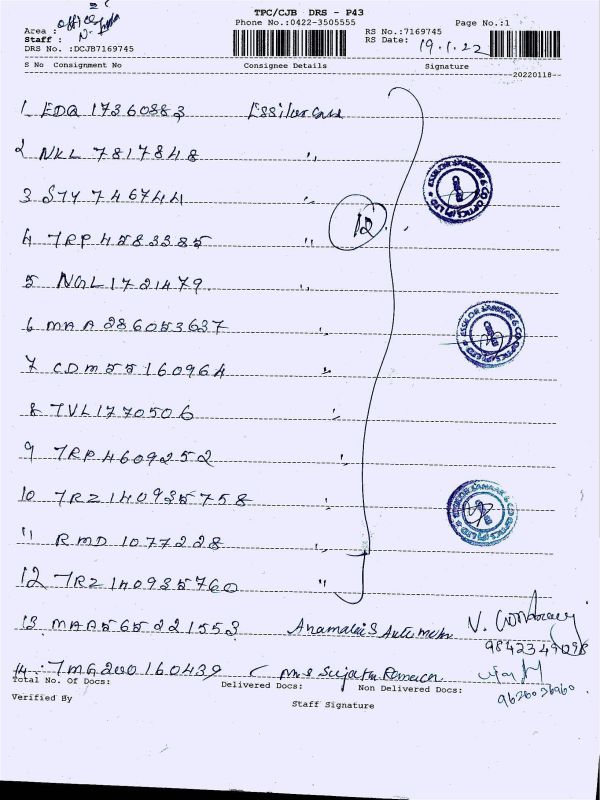 TPC/CJB DRS - P43
Phone No.:0422-3505555
Page No.:1
Area : office
Staff : N.
DRS No. :DCJB7169745
RS No.:7169745
RS Date: 19.1.22
S No Consignment No Consignee Details Signature
--20220118--
1 EDQ 17360883 Essilor
2 NKL 7817848 "
3 STY 746744 "
12
4 TRP 4583385 "
5 NGL1721479 "
6 MAA 286053637 "
7 CDM55160964 "
8 TVL1770506 "
9 TRP4609252 "
10 TRZ 140935758 "
11 RMD 1077228 "
12 TRZ 140935760 "
13 MAA565221553 Anamalais V.
9842349098
14 TMG200160439 Sujatha
9626036960
Total No. Of Docs: Delivered Docs: Non Delivered Docs:
Verified By
Staff Signature